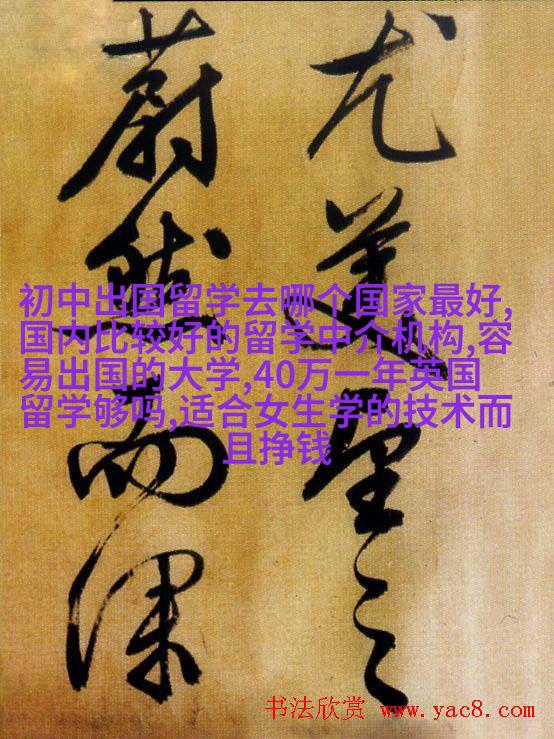 尤美望之
蔚然而深
初中出国留学去哪个国家最好,
国内比较好的留学中介机构,容
易出国的大学,40万一年英国
留学够吗,适合女生学的技术而
且挣钱
书法欣赏 www.yac8.com